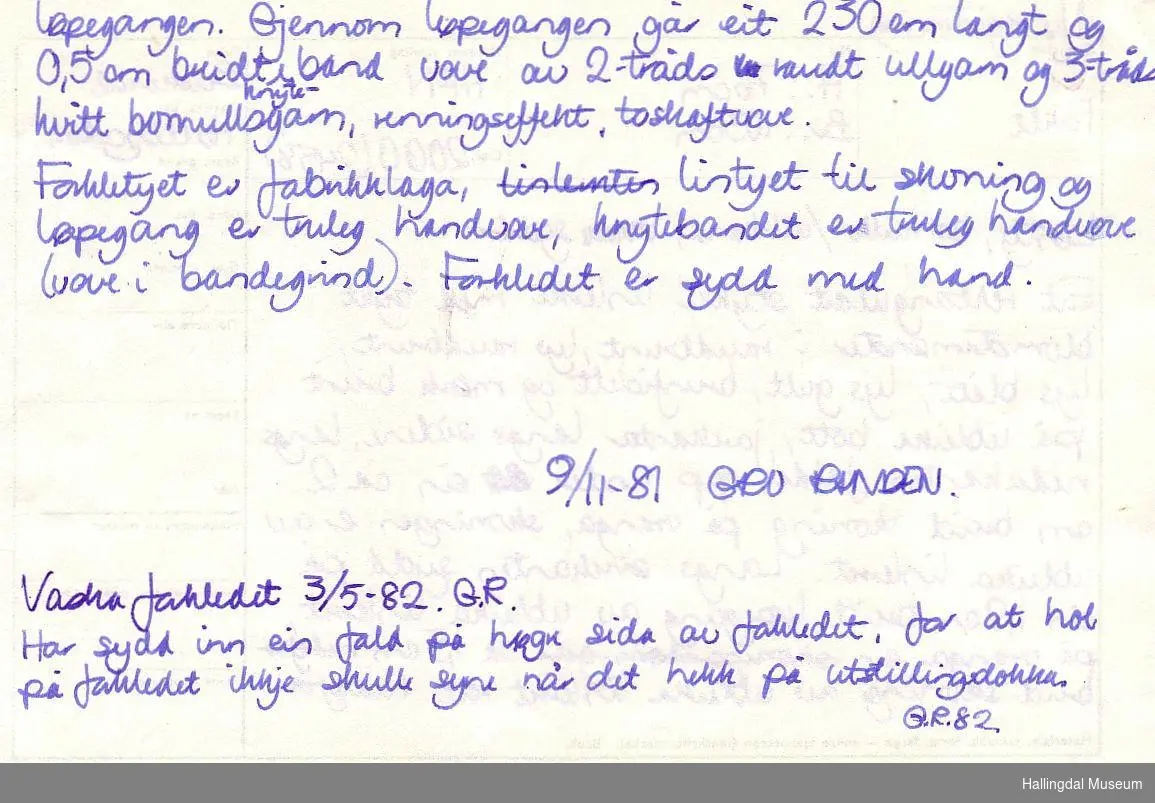 løpegangen. Gjennom løpegangen går eit 230 cm langt og
0,5 cm breidt band vove av 2-tråds raudt ullgarn og 3-tråds
knyte-
hvitt bomullsgarn, renningseffekt, toskaftvove.
Forkletyet er fabrikklaga, lintyet til skoning og
løpegang er truleg handvove, knytebandet er truleg handvove
(vove i bandegrind). Forkledet er sydd med hand.
9/11-81 GRO
Vaska forkledet 3/5-82. G.R.
Har sydd inn ein fald på høgre sida av forkledet, for at hol
på forkledet ikkje skulle syne når det hekk på utstillingsdokka.
G.R.82
Hallingdal Museum